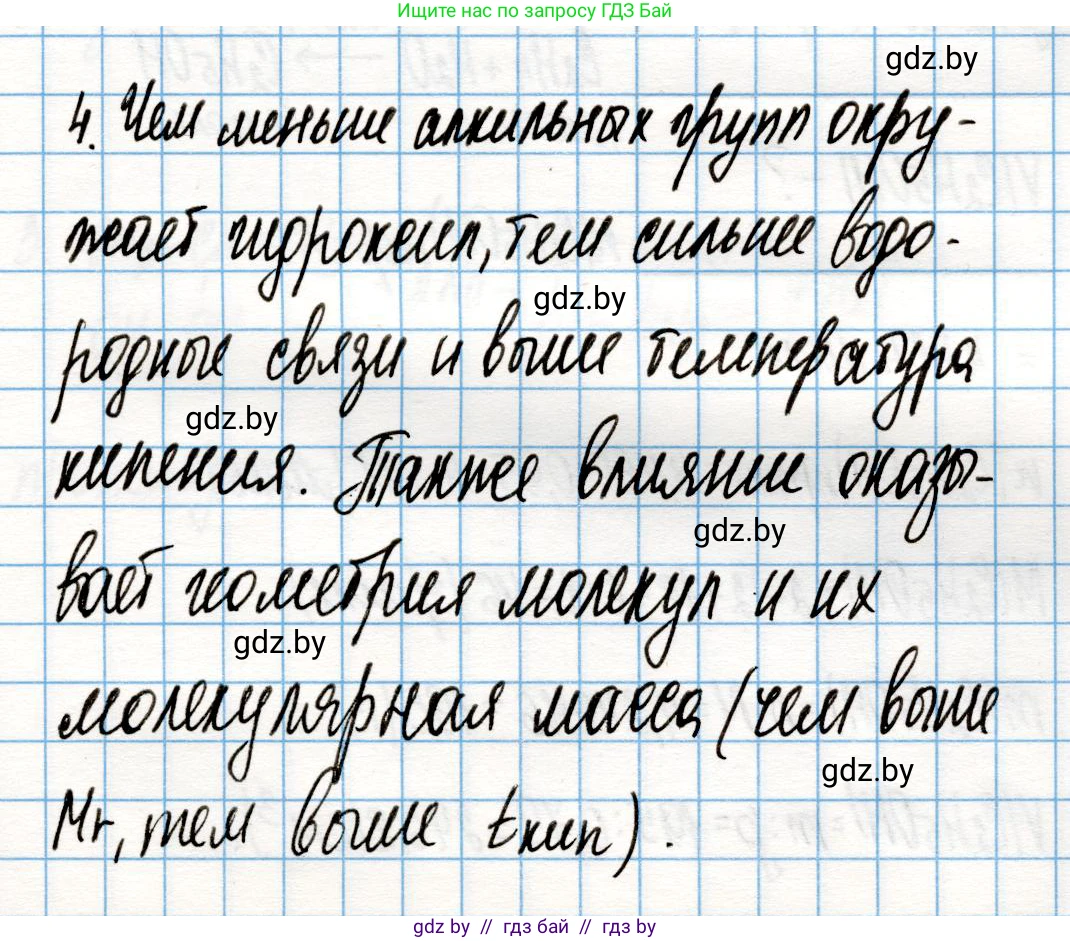 Ищите нас по запросу ГДЗ Бай
gdz.by
4. Чем меньше алкильных групп окру-
жает гидроксил, тем сильнее водо-
gdz.by
родные связи и выше температура
gdz.by
кипения. Также влияние оказы-
gdz.by
вает геометрия молекул и их
gdz.by
молекулярная масса (чем выше
gdz.by
Mr, тем выше tкип).
gdz by // гдз бай // gdz.by